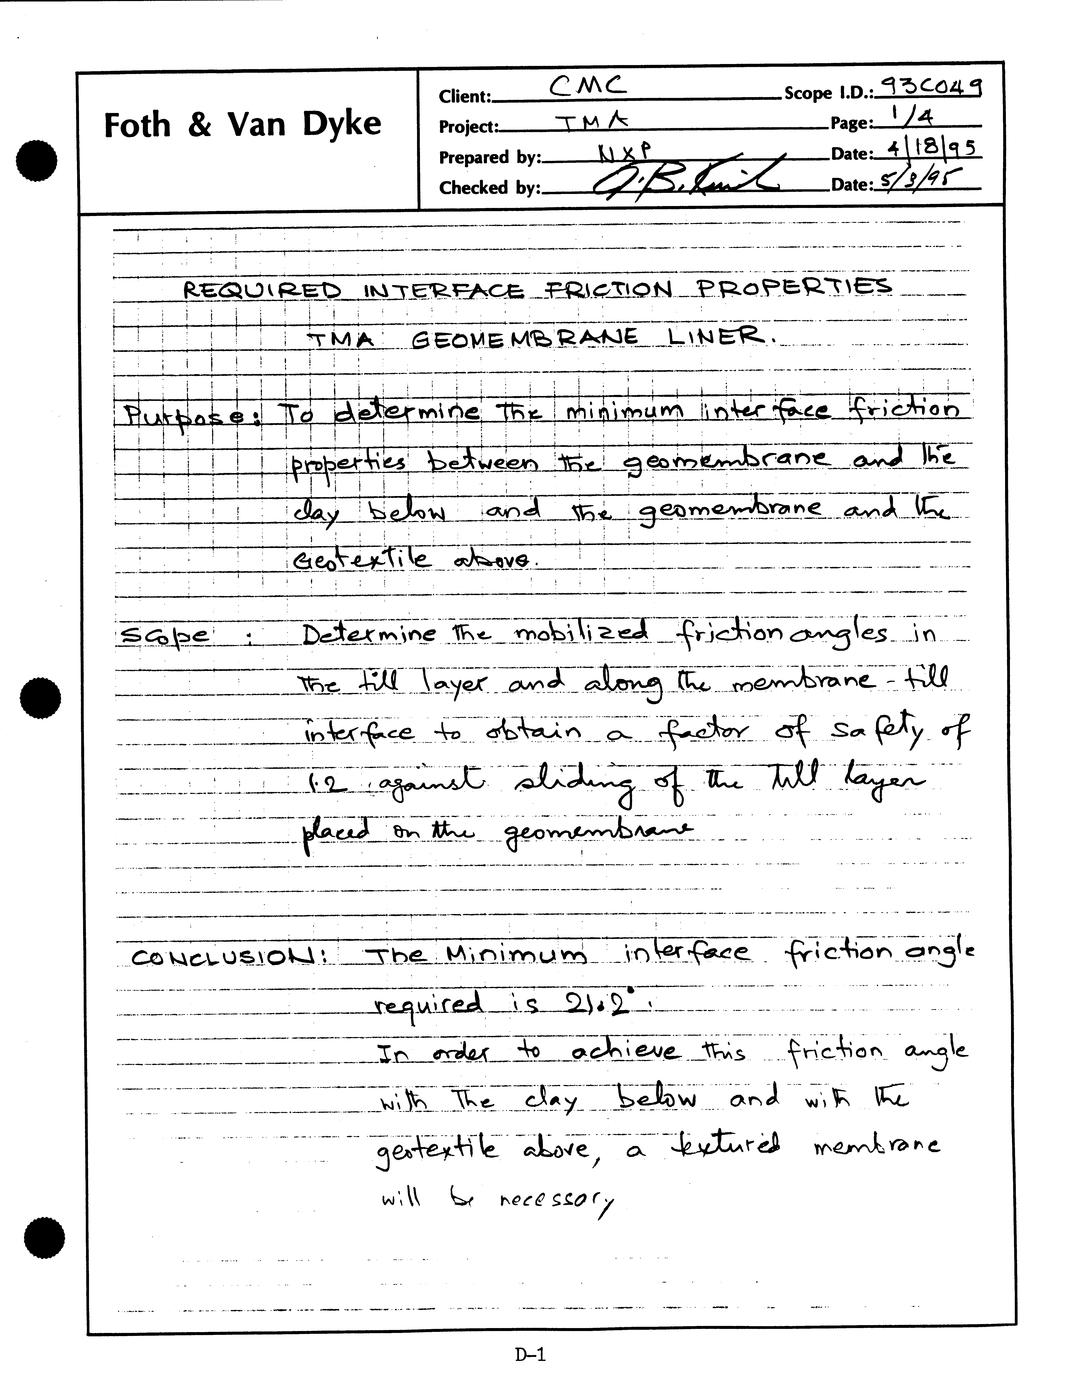 Foth & Van Dyke
Client: CMC Scope I.D.: 93C049
Project: TMA Page: 1/4
Prepared by: NXP Date: 4/18/95
Checked by: Date: 5/3/95
REQUIRED INTERFACE FRICTION PROPERTIES
TMA GEOMEMBRANE LINER.
Purpose: To determine the minimum interface friction
properties between the geomembrane and the
clay below and the geomembrane and the
Geotextile above.
Scope : Determine the mobilized friction angles in
the till layer and along the membrane - till
interface to obtain a factor of safety of
1.2 against sliding of the till layer
placed on the geomembrane
CONCLUSION: The Minimum interface friction angle
required is 21.2°.
In order to achieve this friction angle
with the clay below and with the
geotextile above, a textured membrane
will be necessary
D-1